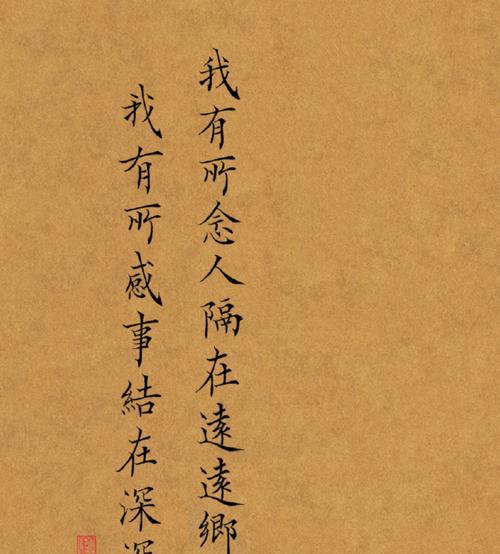 我有所念人隔在遠遠鄉
我有所感事結在深